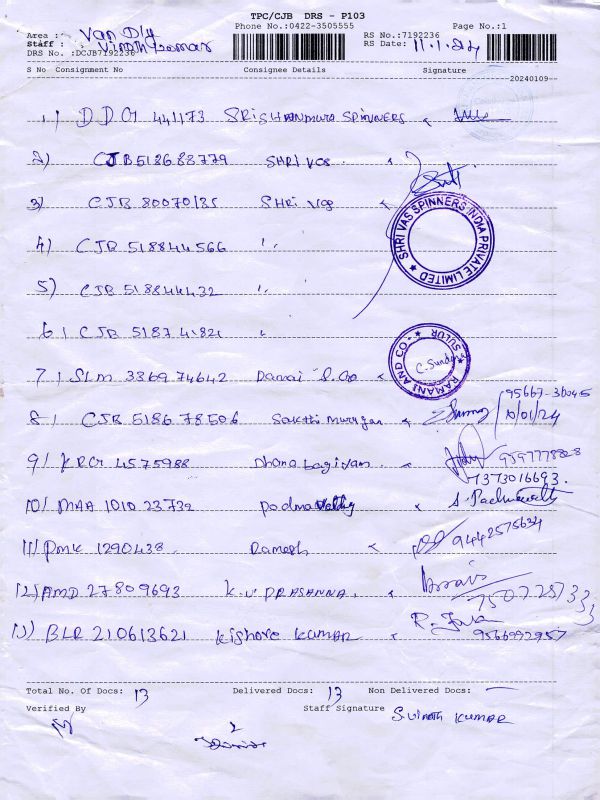 TPC/CJB DRS - P103
Phone No.:0422-3505555 Page No.:1
Area : Van Dly
Staff : Vinoth kumar
DRS No. :DCJB7192236
RS No.:7192236
RS Date: 11.1.24
S No Consignment No Consignee Details Signature
20240109
1) DDG 441173 SRI SHANMUGA SPINNERS
2) CJB 512688779 SHRI VAS
3) CJB 80070135 SHRI VAS
SHRI VAS SPINNERS INDIA PRIVATE LIMITED
4) CJB 518844566 "
5) CJB 518844432 "
6) CJB 51874.1821 "
RAMANI AND CO. SULUR
C. Sundar
7) SLM 336974642 Ramani & Co
95667-36045
8) CJB 518678506 Sakthi murugan 10/01/24
9) KRG 4575988 Dhana Lagivam 9597778828
7373016693.
10) MAA 101023732 Padmavathy
11) PMK 1290438 Ramesh 9442575634
12) AMD 27809693 K.V PRASANNA.
7507257333
13) BLR 210613621 Kishore Kumar
9566992957
Total No. Of Docs: 13 Delivered Docs: 13 Non Delivered Docs: —
Verified By Staff Signature S. Vinoth Kumar
2